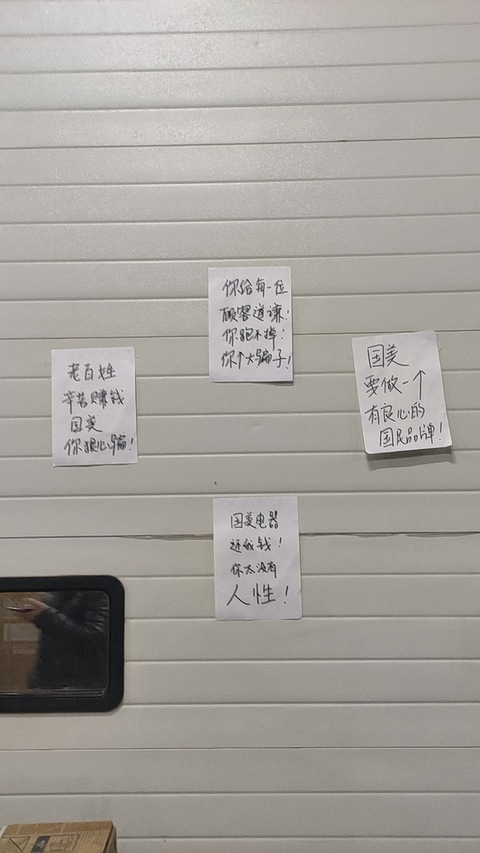 你给每一位
顾客道谦!
你跑不掉!
你个大骗子!
老百姓
辛苦赚钱
国美
你狠心骗!
国美
要做一个
有良心的
国民品牌!
国美电器
还我钱!
你太没有
人性!